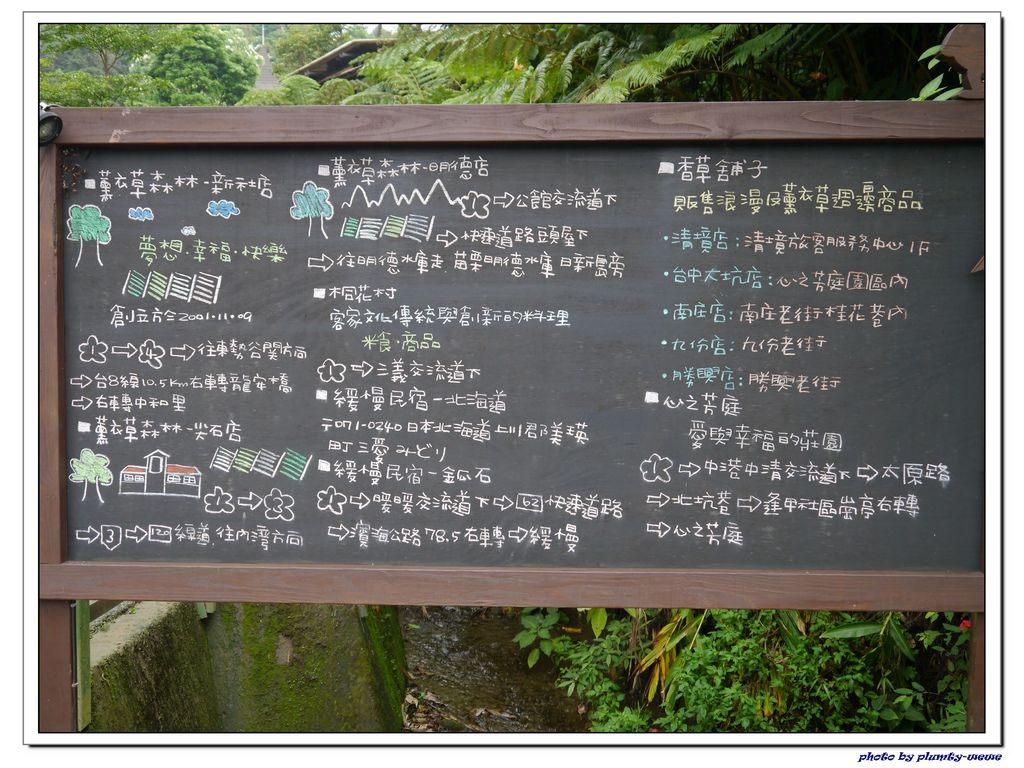 薰衣草森林-新社店
夢想·幸福·快樂
創立於2001.11.09
1→4→往東勢谷關方向
→台8線10.5km右轉龍安橋
→右轉中和里
薰衣草森林-尖石店
1→3
→3→120線道,往內灣方向
薰衣草森林-明德店
1→公館交流道下
→快速道路頭屋下
→往明德水庫走 苗栗明德水庫日新島旁
桐花村
客家文化傳統與創新的料理
米食·商品
1→三義交流道下
緩慢民宿-北海道
〒071-0240日本北海道上川君郡美瑛
町三愛みどり
緩慢民宿-金瓜石
1→暖暖交流道下→62快速道路
→濱海公路78.5右轉→緩慢
香草舖子
販售浪漫及薰衣草週邊商品
·清境店:清境旅客服務中心1F
·台中大坑店:心之芳庭園區內
·南庄店:南庄老街桂花巷內
·九份店:九份老街
·勝興店:勝興老街
心之芳庭
愛與幸福的莊園
1→中港中清交流道下→太原路
→北坑巷→逢甲社區崗亭右轉
→心之芳庭
photo by plumty-wewe